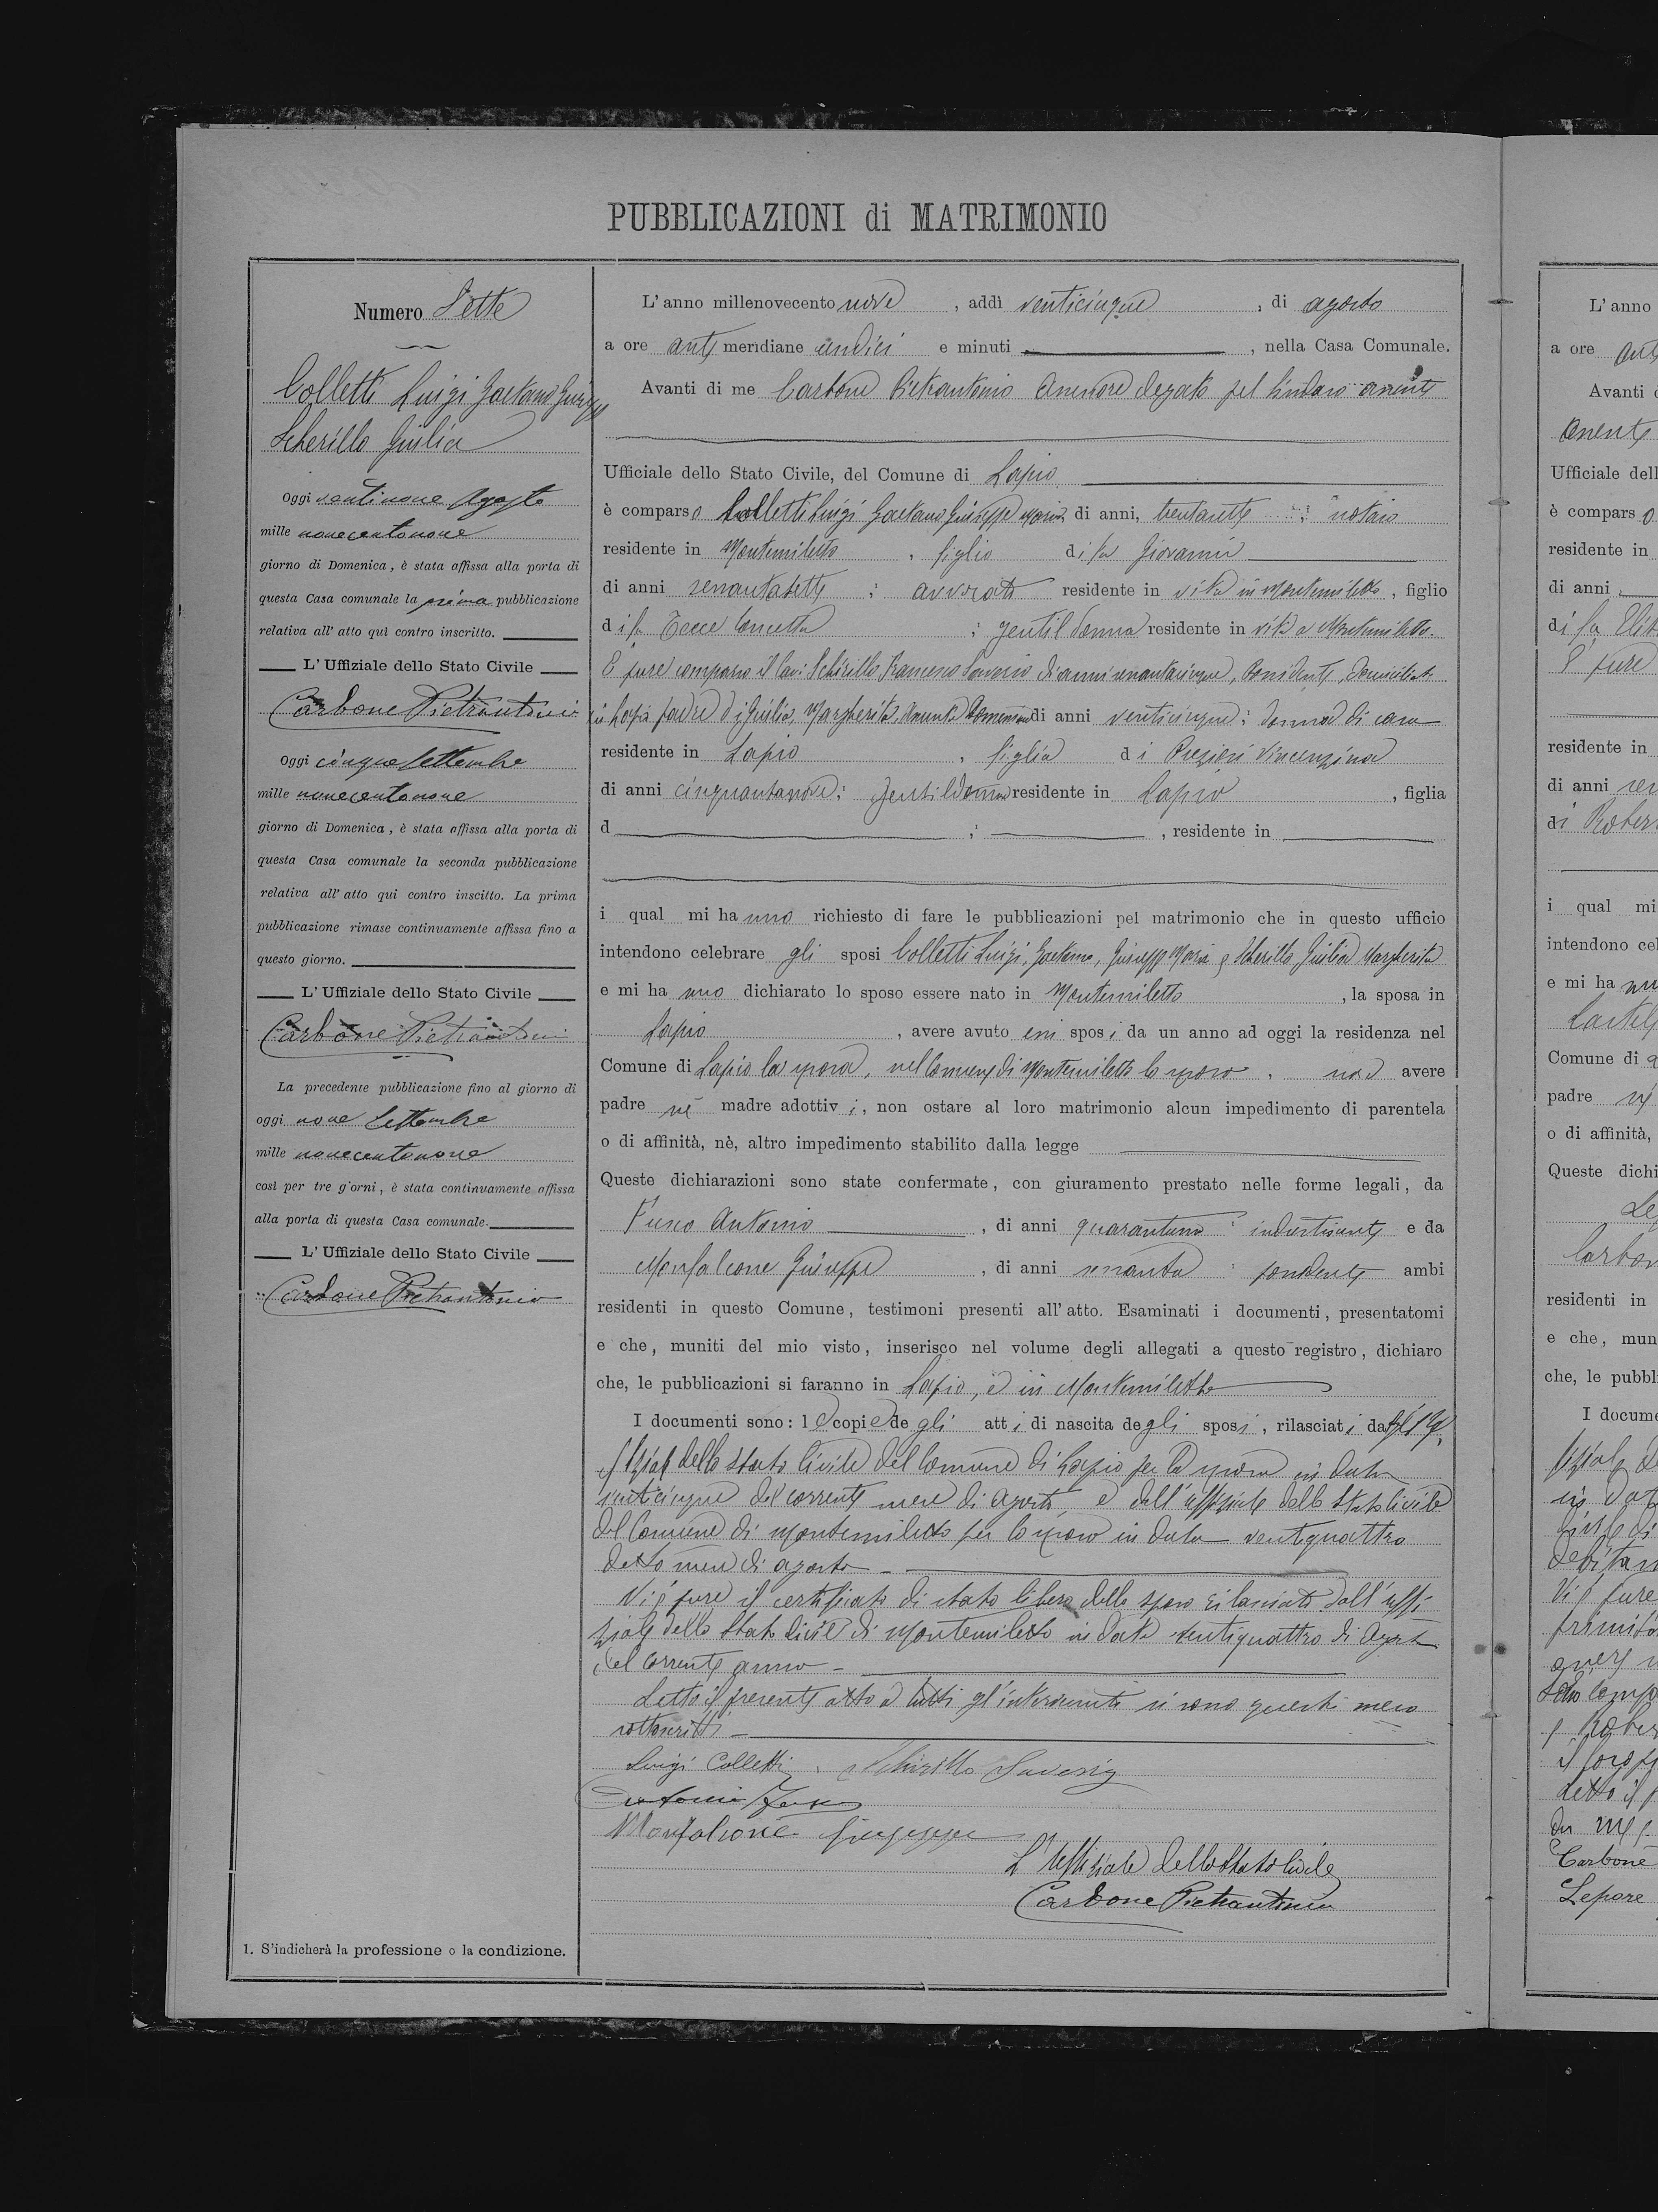 PUBBLICAZIONI di MATRIMONIO
Numero Sette
Colletti Luigi Gaetano Giuseppe
Scherillo Giulia
Oggi ventinove Agosto
mille novecentonove
giorno di Domenica, è stata affissa alla porta di
questa Casa comunale la prima pubblicazione
relativa all' atto quì contro inscritto.
L' Uffiziale dello Stato Civile
Carbone Pietrantonio
Oggi cinque Settembre
mille novecentonove
giorno di Domenica, è stata affissa alla porta di
questa Casa comunale la seconda pubblicazione
relativa all' atto qui contro inscitto. La prima
pubblicazione rimase continuamente affissa fino a
questo giorno.
L' Uffiziale dello Stato Civile
Carbone Pietrantonio
La precedente pubblicazione fino al giorno di
oggi nove Settembre
mille novecentonove
così per tre giorni, è stata continuamente affissa
alla porta di questa Casa comunale.
L' Uffiziale dello Stato Civile
Carbone Pietrantonio
1. S'indicherà la professione o la condizione.
L' anno millenovecento nove , addì venticinque , di agosto
a ore anti meridiane undici e minuti , nella Casa Comunale.
Avanti di me Carbone Pietrantonio Assessore delegato pel Sindaco assente
Ufficiale dello Stato Civile, del Comune di Lapio
è comparso Colletti Luigi Gaetano Giuseppe Maria di anni, trentasette : notaio
residente in Montemiletto , figlio di fu Giovanni
di anni sessantasette : avvocato residente in vita in Montemiletto , figlio
di fu Tecce Concetta : gentil donna residente in vita a Montemiletto.
È pure comparso il Cav: Scherillo Francesco Saverio di anni sessantacinque, Possidente, domiciliato
in Lapio padre di Giulia, Margherita, Assunta di anni venticinque : donna di casa
residente in Lapio , figlia di Preziosi Vincenzina
di anni cinquantanove : Gentildonna residente in Lapio , figlia
d ; , residente in
i qual mi hanno richiesto di fare le pubblicazioni pel matrimonio che in questo ufficio
intendono celebrare gli sposi Colletti Luigi, Gaetano, Giuseppe Maria e Scherillo Giulia Margherita
e mi hanno dichiarato lo sposo essere nato in Montemiletto , la sposa in
Lapio , avere avuto essi sposi da un anno ad oggi la residenza nel
Comune di Lapio la sposa, nel Comune di Montemiletto lo sposo , non avere
padre nè madre adottivi, non ostare al loro matrimonio alcun impedimento di parentela
o di affinità, nè, altro impedimento stabilito dalla legge
Queste dichiarazioni sono state confermate, con giuramento prestato nelle forme legali, da
Fusco Antonio , di anni quarantuno : industriante e da
Monfalcone Giuseppe , di anni sessanta : possidente ambi
residenti in questo Comune, testimoni presenti all' atto. Esaminati i documenti, presentatomi
e che, muniti del mio visto, inserisco nel volume degli allegati a questo registro, dichiaro
che, le pubblicazioni si faranno in Lapio, e in Montemiletto
I documenti sono: le copie degli atti di nascita degli sposi, rilasciati
dello Stato Civile del Comune di Lapio per la sposa in data
venticinque del corrente mese di agosto e dall'uffiziale dello Stato Civile
del Comune di Montemiletto per lo sposo in data ventiquattro
detto mese di agosto
Vi è pure il certificato di stato libero dello sposo rilasciato dall'uffi
ziale dello Stato Civile di Montemiletto in data ventiquattro di Agosto
del corrente anno
Letto il presente atto a tutti gl'intervenuti si sono questi meco
sottoscritti
Luigi Colletti Scherillo Saverio
Antonio Fusco
Monfalcone Giuseppe
L'Uffiziale dello Stato Civile
Carbone Pietrantonio
L' anno
a ore anti
Avanti
assente
Ufficiale dell
è comparso
residente in
di anni
di fu
È pure
residente in
di anni
di
i qual mi
intendono cel
e mi ha
Comune di
padre
o di affinità,
Queste dichi
Carbon
residenti in
e che, mun
che, le pubbl
I docume
Vi è pure
Carbone
Lepore